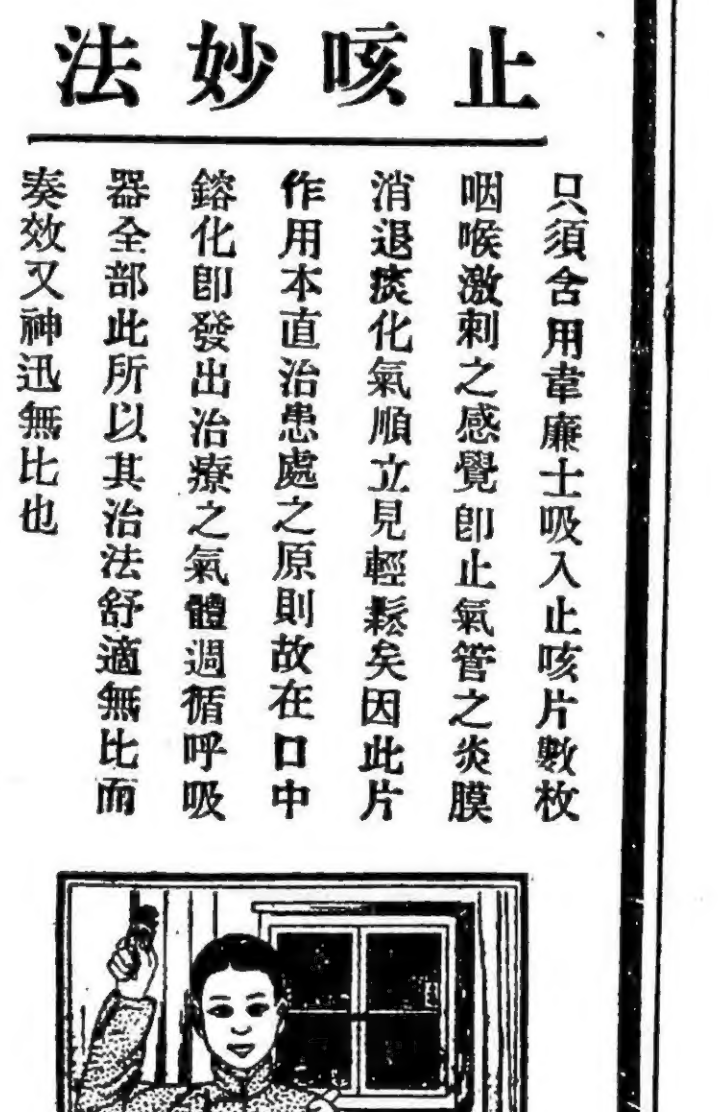 止咳妙法
只須含用韋廉士吸入止咳片數枚
咽喉激刺之感覺卽止氣管之炎膜
消退痰化氣順立見輕鬆矣因此片
作用本直治患處之原則故在口中
鎔化卽發出治療之氣體週循呼吸
器全部此所以其治法舒適無比而
奏效又神迅無比也